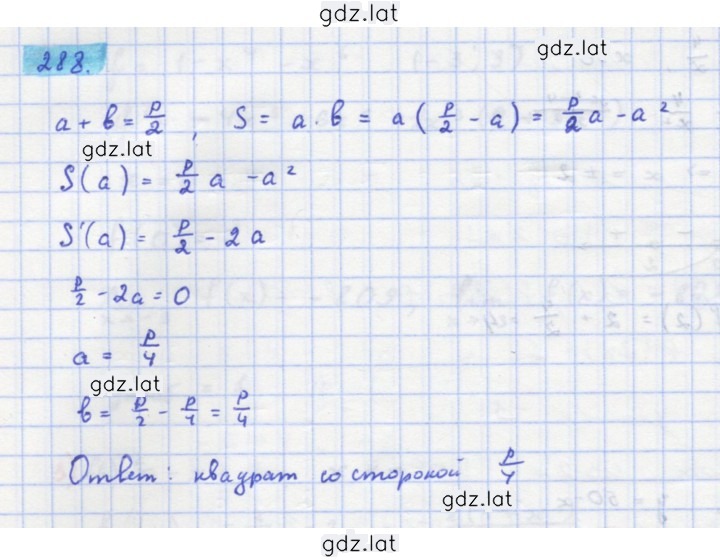 gdz.lat
gdz.lat
288.
a + b = p/2, S = a · b = a(p/2 - a) = p/2 a - a²
gdz.lat
S(a) = p/2 a - a²
S'(a) = p/2 - 2a
p/2 - 2a = 0
a = p/4
gdz.lat
b = p/2 - p/4 = p/4
Ответ: квадрат со стороной p/4
gdz.lat
gdz.lat